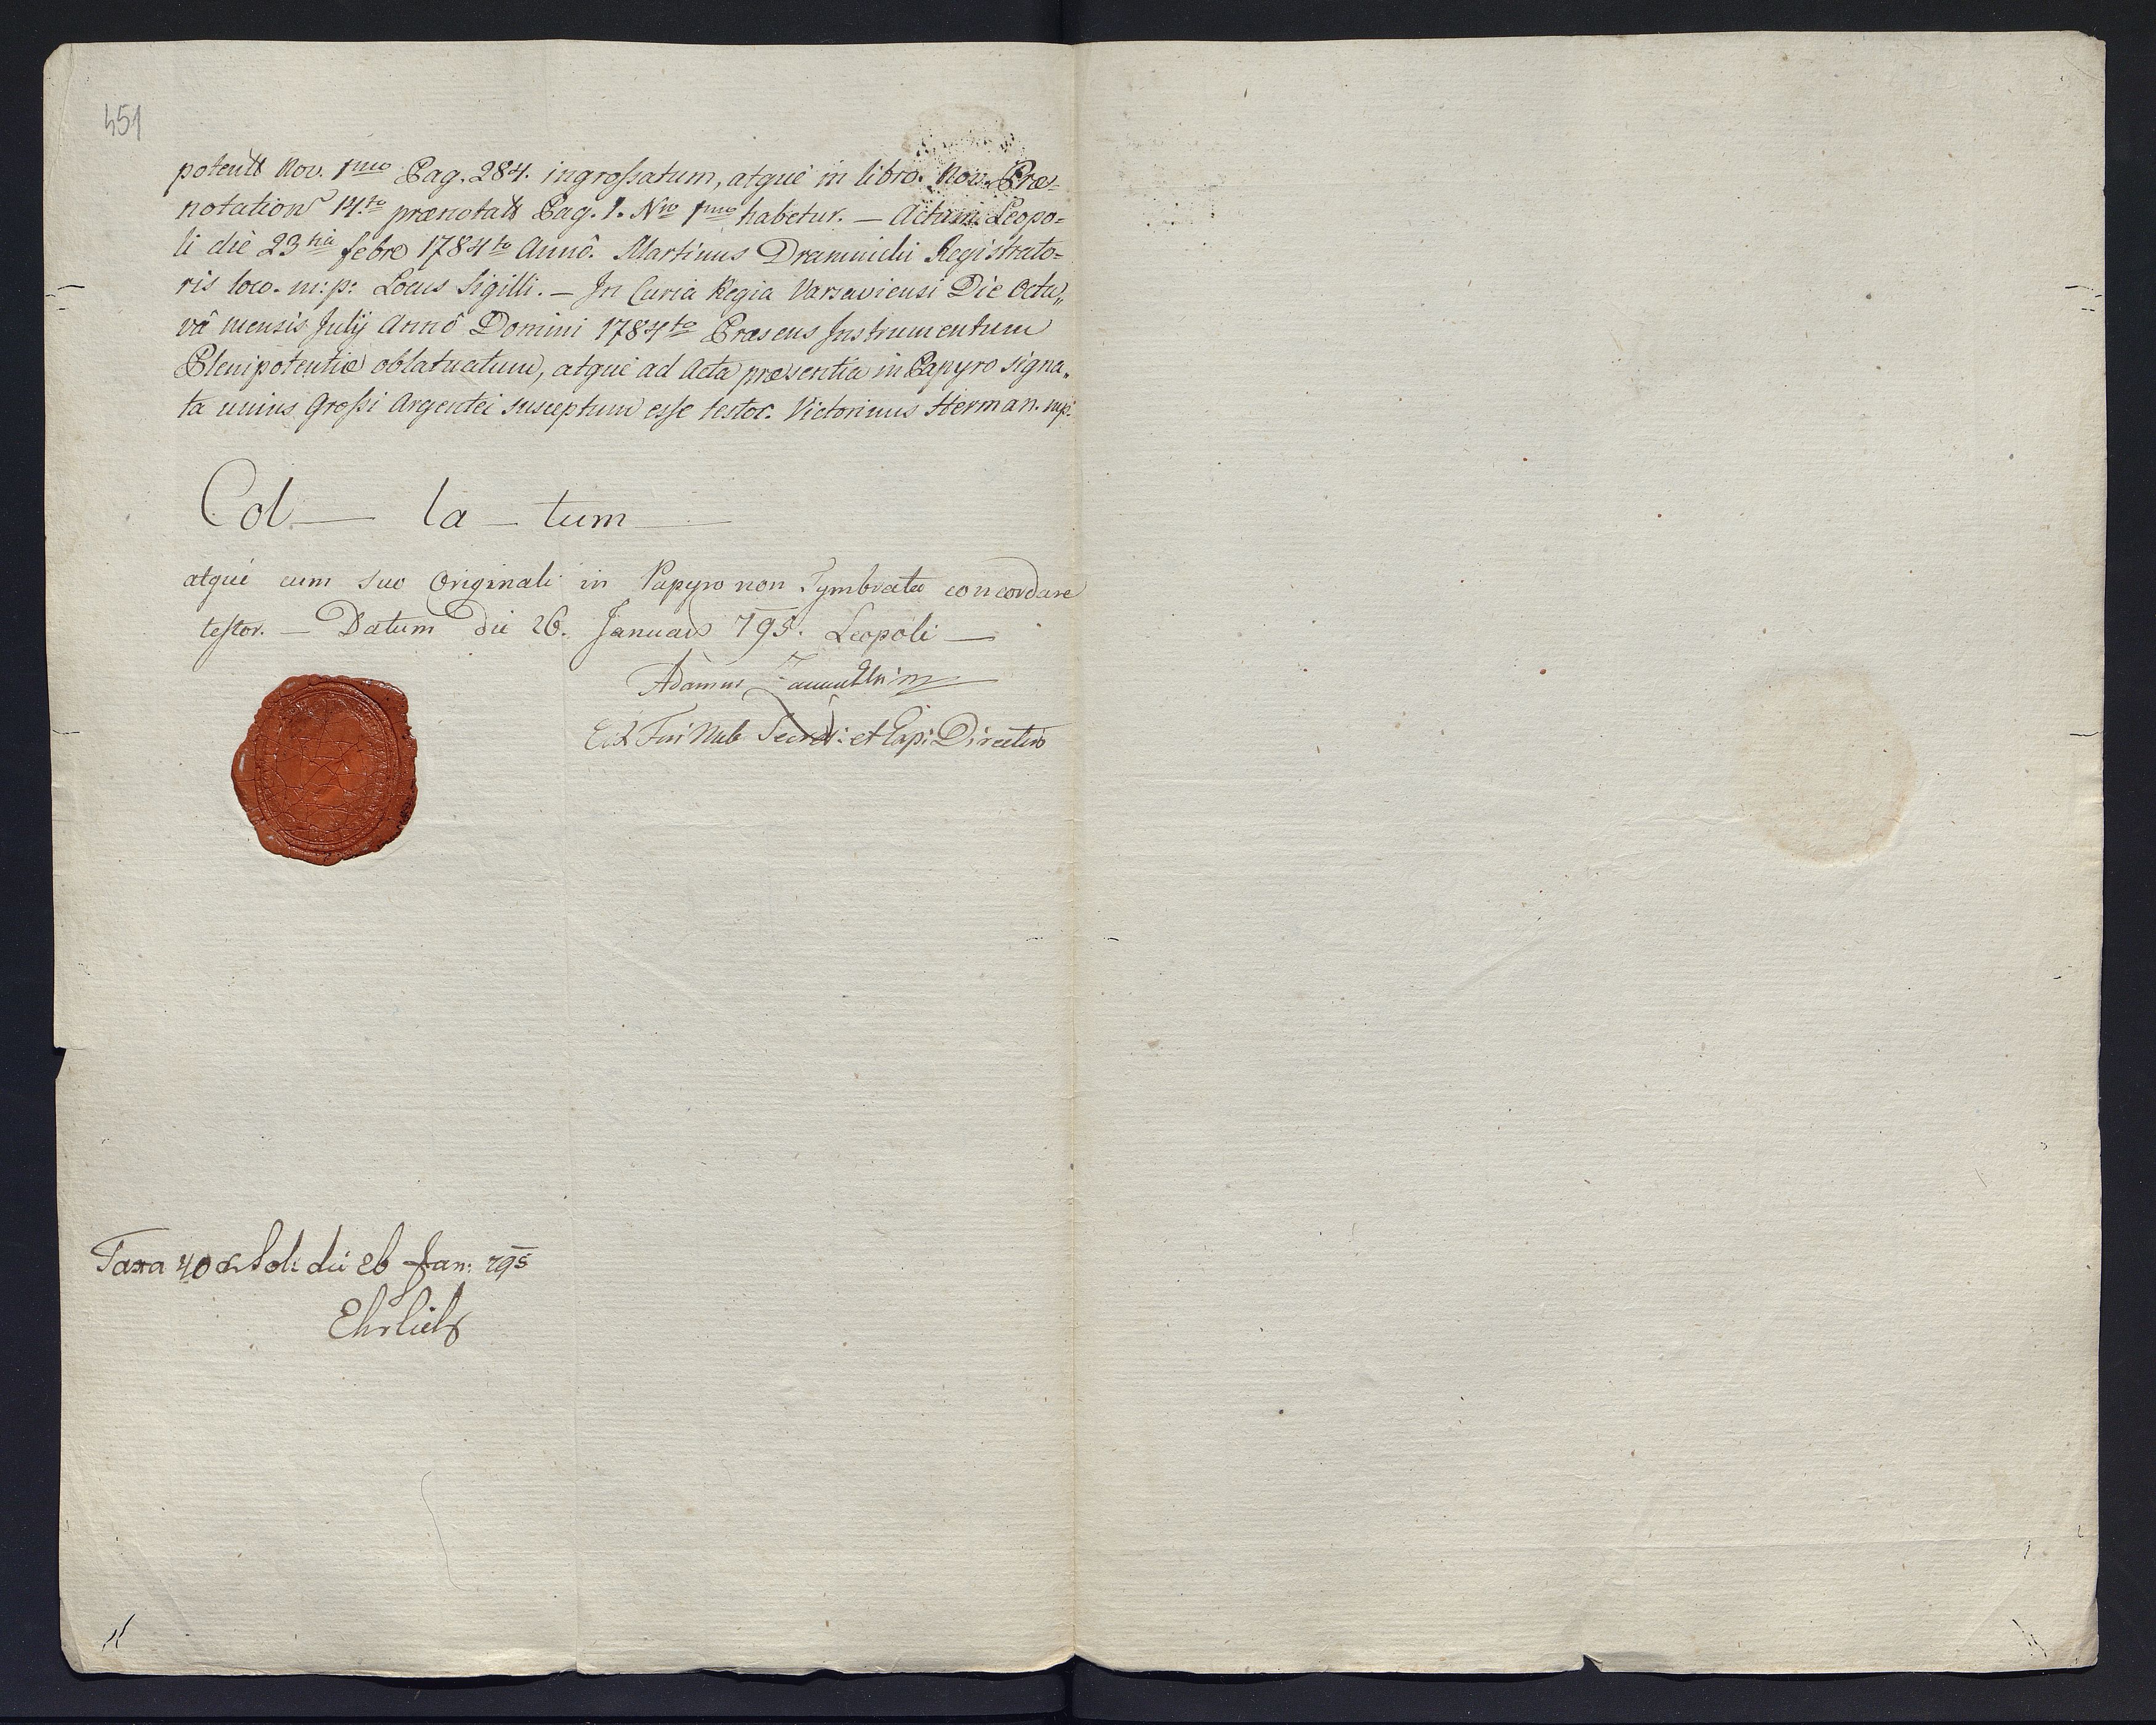 451
potentt Nov. 1mo Pag. 284. ingrossatum, atque in libro. Nov. Præ=
notation 14to prænotatt Pag. 1. Nro 1mo habetur. — Actum Leopo=
li die 23tia febro 1784to Annô. Martinus Dramnicki Registrato=
ris loco. m:p: Locus Sigilli. — In Curia Regia Varsaviensi Die Octa„
vâ mensis July Annô Domini 1784to Præsens Instrumentum
Plenipotentiæ oblatuatum, atque ad Acta præsentia in Papyro signa„
ta unius Grossi Argentei susceptum esse testor. Victorinus Herman. mp:
Col — la — tum —
atque cum suo Originali in Papyro non Tymbrata concordare
testor. — Datum die 26. Januar 795. Leopoli —
Adamus
et Directio
Taxa 40 die 26 Jan: 795
Ehrlich